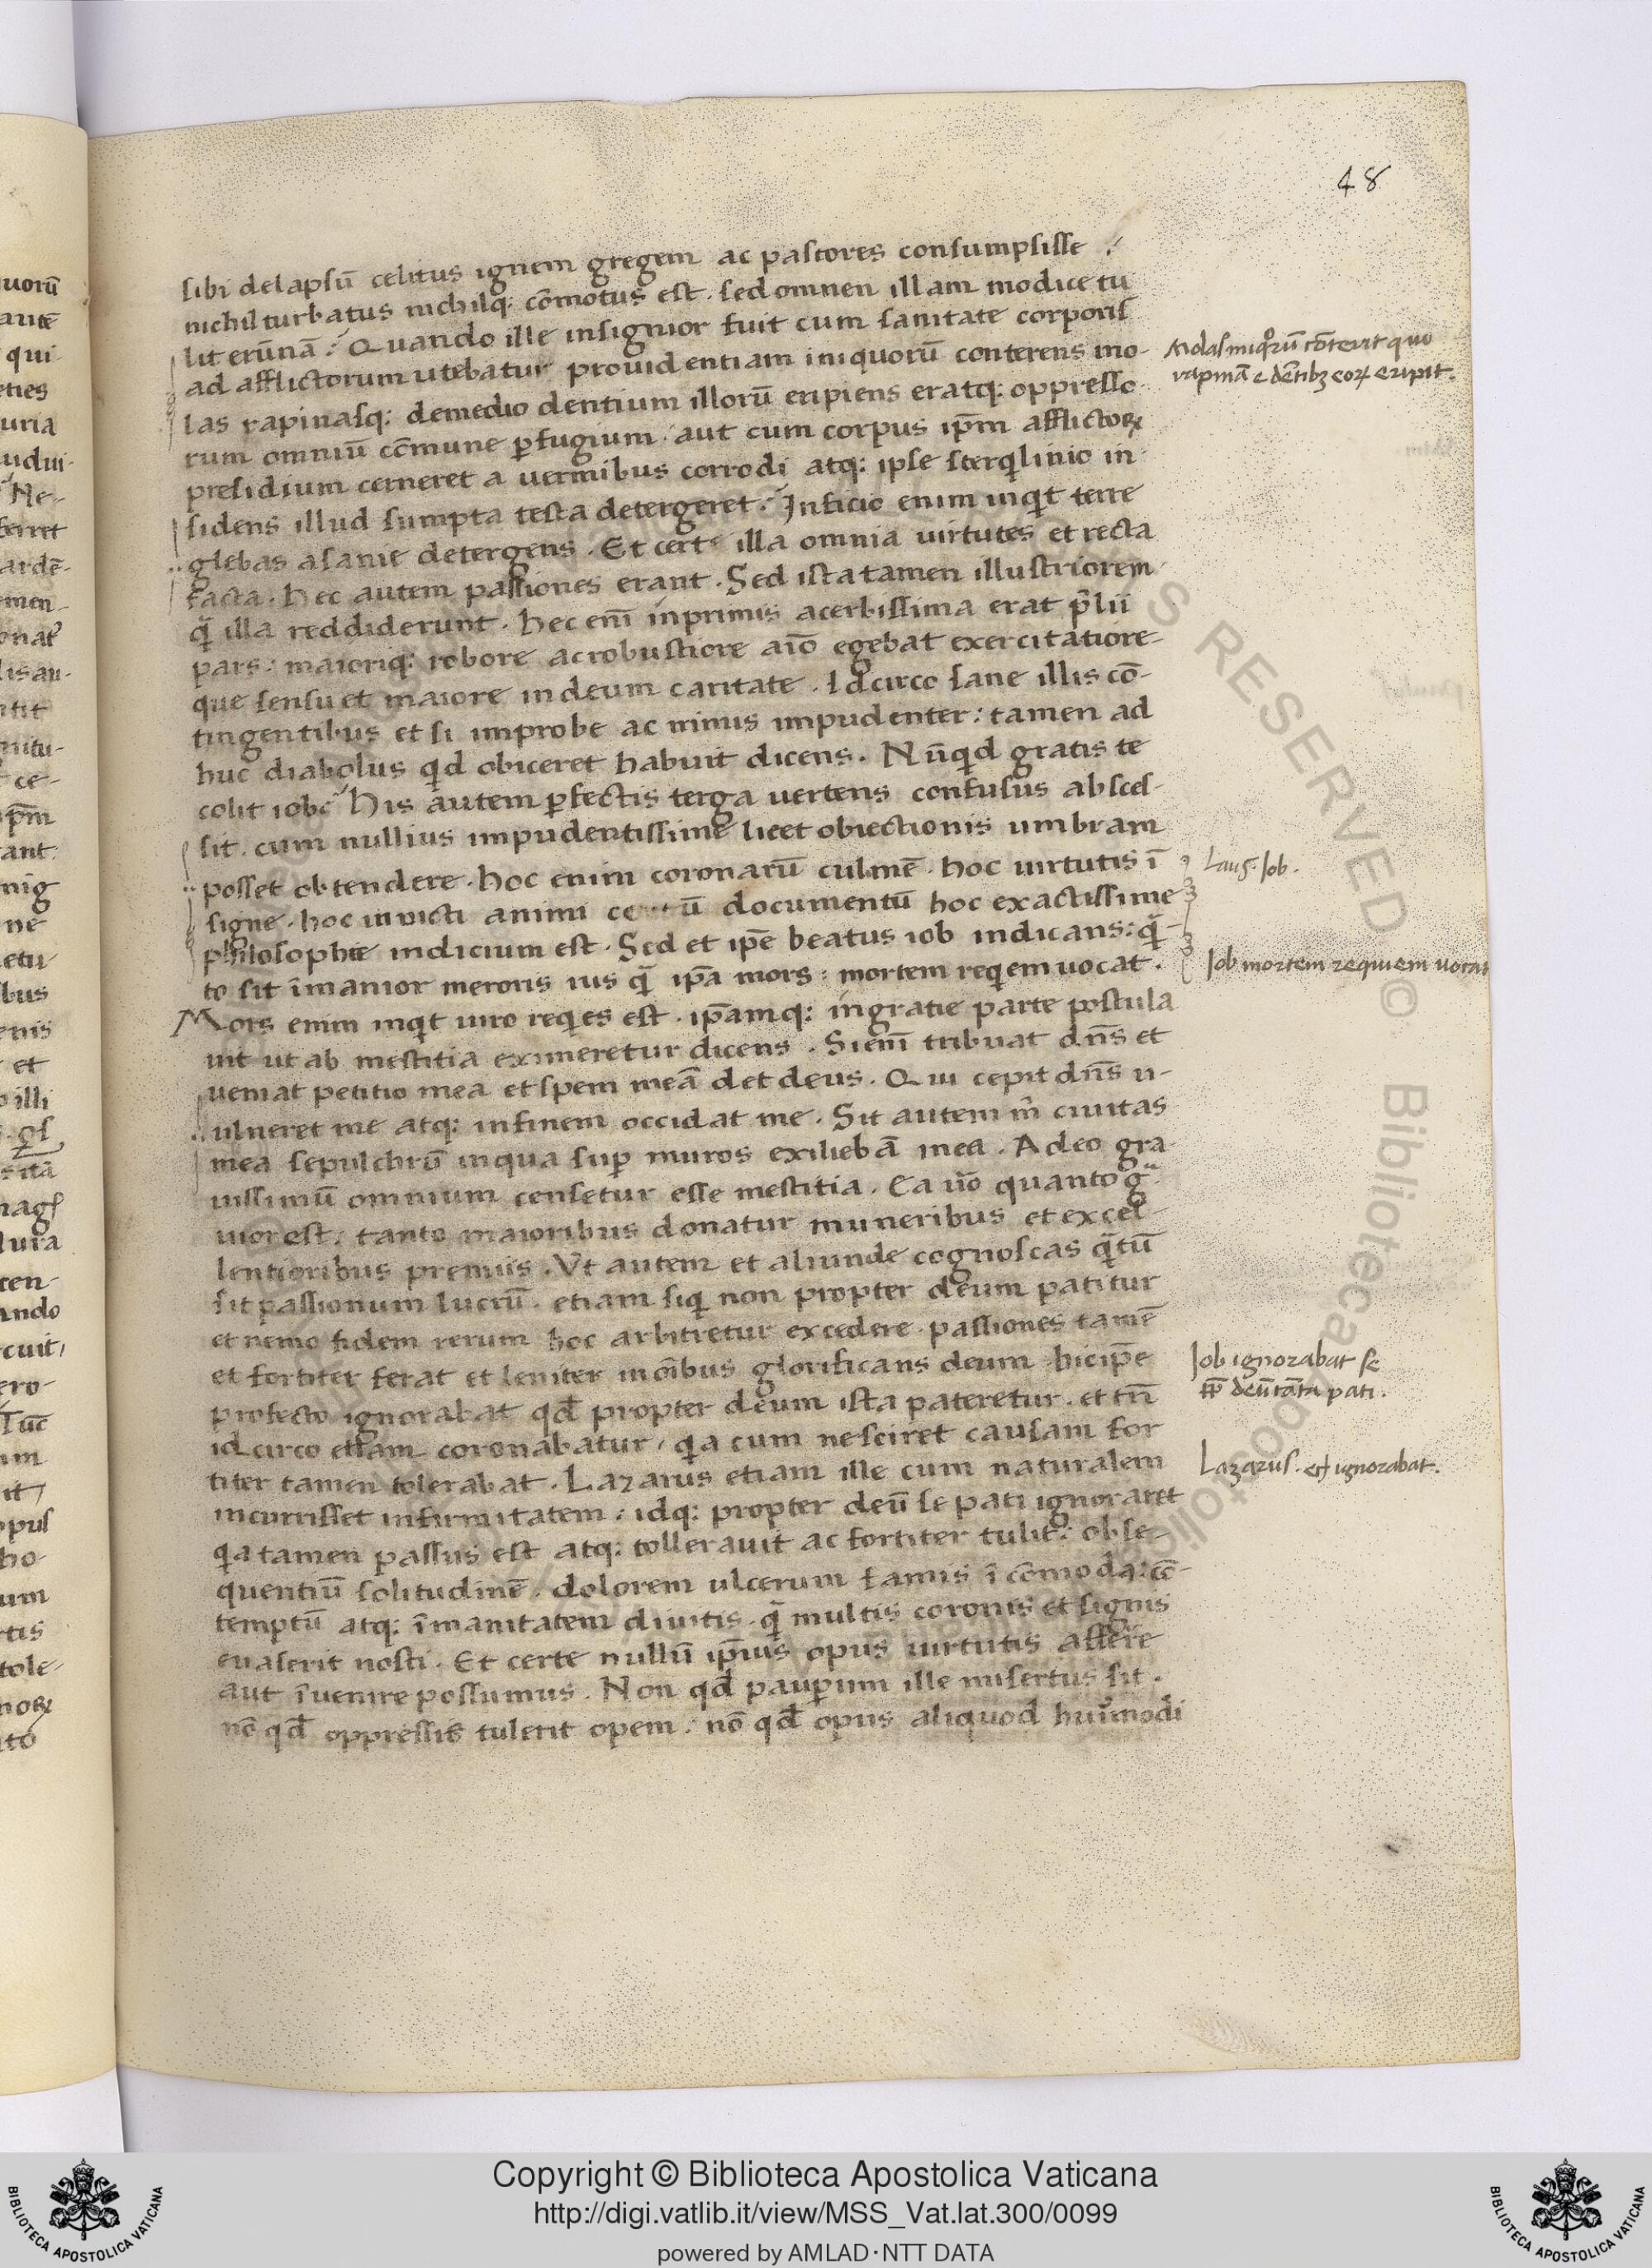 48
sibi delapsū celitus ignem gregem ac pastores consumpsisse ⸵
nichil turbatus nichilq; cōmotus est. sed omnen illam modice tu
lit erūnā ⸵ Quando ille insignior fuit cum sanitate corporis
ad afflictorum utebatur prouidentiam iniquorū conterens mo-
las rapinasq; demedio dentium illorū eripiens eratq; oppresso
rum omniū cōmune ꝑfugium. aut cum corpus ip̄m afflictoꝝ
presidium cerneret a uermibus corrodi atq; ipse sterqlinio in-
sidens illud sumpta testa detergeret. Inficio enim inqt terre
glebas asanie detergens. Et certe illa omnia uirtutes et recta
facta. hec autem passiones erant. Sed ista tamen illustriorem
q̄ illa reddiderunt. hec enī inprimis acerbissima erat p̄lii
pars: maioriq; robore acrobustiore aīo egebat exercitatiore-
que sensu et maiore indeum caritate. Idcirco sane illis cō-
tingentibus et si improbe ac nimis impudenter: tamen ad
huc diabolus qd obiceret habuit dicens. Nūqd gratis te
colit iob⸵ His autem ꝑfectis terga uertens confusus absces-
sit. cum nullius impudentissime licet obiectionis umbram
posset obtendere. hoc enim coronarū culmē. hoc uirtutis ī
signe. hoc inuicti animi documentū hoc exactissime
philosophie indicium est. Sed et ipe beatus iob indicans: q̄-
to sit īmanior meroris ius q̄ ip̄a mors: mortem reqem uocat.
Mors enim inqt uiro reqes est. ip̄amq; ingratie parte postula
uit ut ab mestitia eximeretur dicens. Si enī tribuat dn̄s et
ueniat petitio mea et spem meā det deus. Qui cepit dn̄s u-
ulneret me atq; infinem occidat me. Sit autem m̄ ciuitas
mea sepulchrū inqua suꝑ muros exiliebā mea. Adeo gra-
uissimū omnium censetur esse mestitia. Ea ūo quanto gͣ
uior est, tanto maioribus donatur muneribus et excel-
lentioribus premiis. Vt autem et aliunde cognoscas qͣtū
sit passionum lucrū. etiam siqi non propter deum patitur
et nemo fidem rerum hoc arbitretur excedere. passiones tamē
et fortiter ferat et leniter inōibus glorificans deum. hic ip̄e
profecto ignorabat qd̄ propter deum ista pateretur. et tn̄
idcirco etiam coronabatur, qa cum nesciret causam for
titer tamen tolerabat. Lazarus etiam ille cum naturalem
incurrisset infirmitatem: idq; propter deū se pati ignoraret
qa tamen passus est atq; tollerauit ac fortiter tulit: obse-
quentiū solitudinē. dolorem ulcerum famis īcōmoda: cō-
temptū atq; īmanitatem diuitis. q̄ multis coronis et signis
euaserit nosti. Et certe nullū ip̄ius opus uirtutis afferre
aut īuenire possumus. Non qd̄ pauꝑum ille misertus sit.
nō qd̄ oppressis tulerit opem: nō qd̄ opus aliquod huīmodi
Molas iniqoꝝ cōterit quo
rapinā e dētibꝫ eoꝝ eripit.
Laus. Iob.
Iob mortem requiem uocat
Iob ignorabat se
ꝓp̄ deū tāta pati.
Lazarus. et ignorabat.
uorū
autē
qui
eties
uria
udui-
Ne-
ferret
ardē-
men-
lisau-
ce-
ip̄m
ant
ne
etu-
bus
enis
et
illi
uira
ten-
ando
cuit,
ero-
Tūc
um
it,
opus
ho-
um
tis
tole-
noꝝ
ito
ALL RIGHTS RESERVED © Biblioteca Apostolica Vaticana
Copyright © Biblioteca Apostolica Vaticana
http://digi.vatlib.it/view/MSS_Vat.lat.300/0099
powered by AMLAD·NTT DATA
BIBLIOTECA APOSTOLICA VATICANA
BIBLIOTECA APOSTOLICA VATICANA